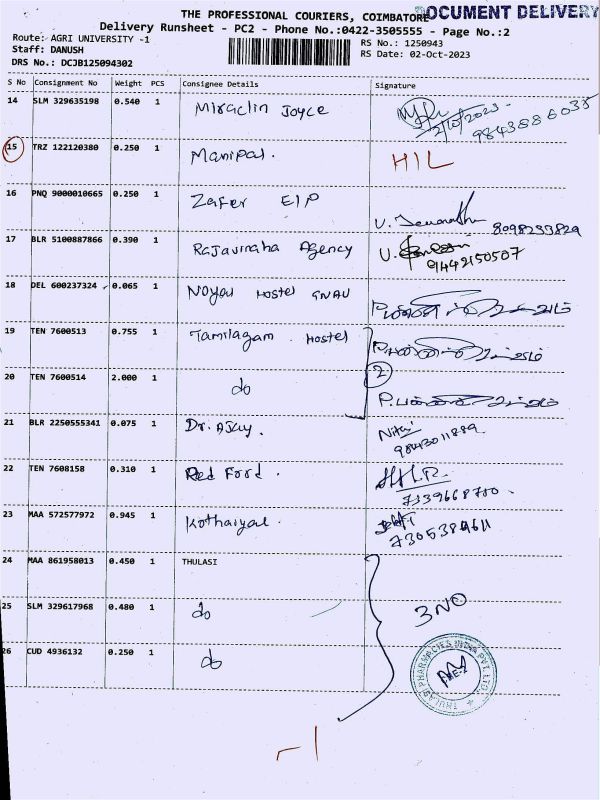 THE PROFESSIONAL COURIERS, COIMBATORE
DOCUMENT DELIVERY
Delivery Runsheet - PC2 - Phone No.:0422-3505555 - Page No.:2
Route: AGRI UNIVERSITY -1
RS No.: 1250943
Staff: DANUSH
RS Date: 02-Oct-2023
DRS No.: DCJB125094302
S No Consignment No Weight PCS Consignee Details Signature
14 SLM 329635198 0.540 1 Miraclin Joyce
2/10/2023
15 TRZ 122120380 0.250 1 Manipal. HIL
16 PNQ 9000010665 0.250 1 Zafer EIP
8098233829
17 BLR 5100887866 0.390 1 Rajavinaha Agency
9442150507
18 DEL 600237324 0.065 1 Noyal Hostel TNAU
19 TEN 7600513 0.755 1 Tamilagam Hostel
2
20 TEN 7600514 2.000 1 do
21 BLR 2250555341 0.075 1 Dr. Ajay.
9843011889.
22 TEN 7608158 0.310 1 Red Ford.
7139668780.
23 MAA 572577972 0.945 1 Kothaiyal.
7305384611
24 MAA 861958013 0.450 1 THULASI
25 SLM 329617968 0.480 1 do 3 NO
26 CUD 4936132 0.250 1 do
THULASI PHARMACIES INDIA PVT. LTD.
-1